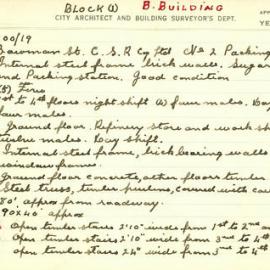 BLOCK (1) B. BUILDING
CITY ARCHITECT AND BUILDING SURVEYOR'S DEPT.
APP
YE
00/19
Bowman St. C.S.R Co Ltd No 2 Packing
Internal steel frame brick walls. Sugar
and Packing station. Good condition
(5) Five
1st to 4th floors night shift (4) four males. Day
four males.
Ground floor. Refinery store and work sh
twelve males. Day shift.
Internal steel frame, brick bearing walls
Ground floor concrete, other floors timber
Steel truss, timber purlins, covered with
80' approx from roadway.
90x40' approx
Open timber stairs 2'10" wide from 1st to 2nd
Open timber stairs 2'10" wide from 3rd to 4th
Open timber stairs 24" wide from 3rd to 4th